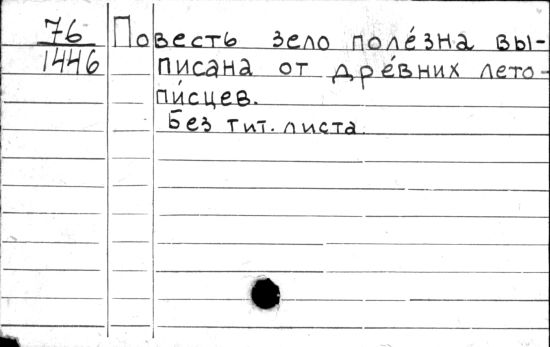 76
1446
Повесть зело поле́зна вы-
писана от дре́вних лето-
пи́сцев.
Без тит. листа.